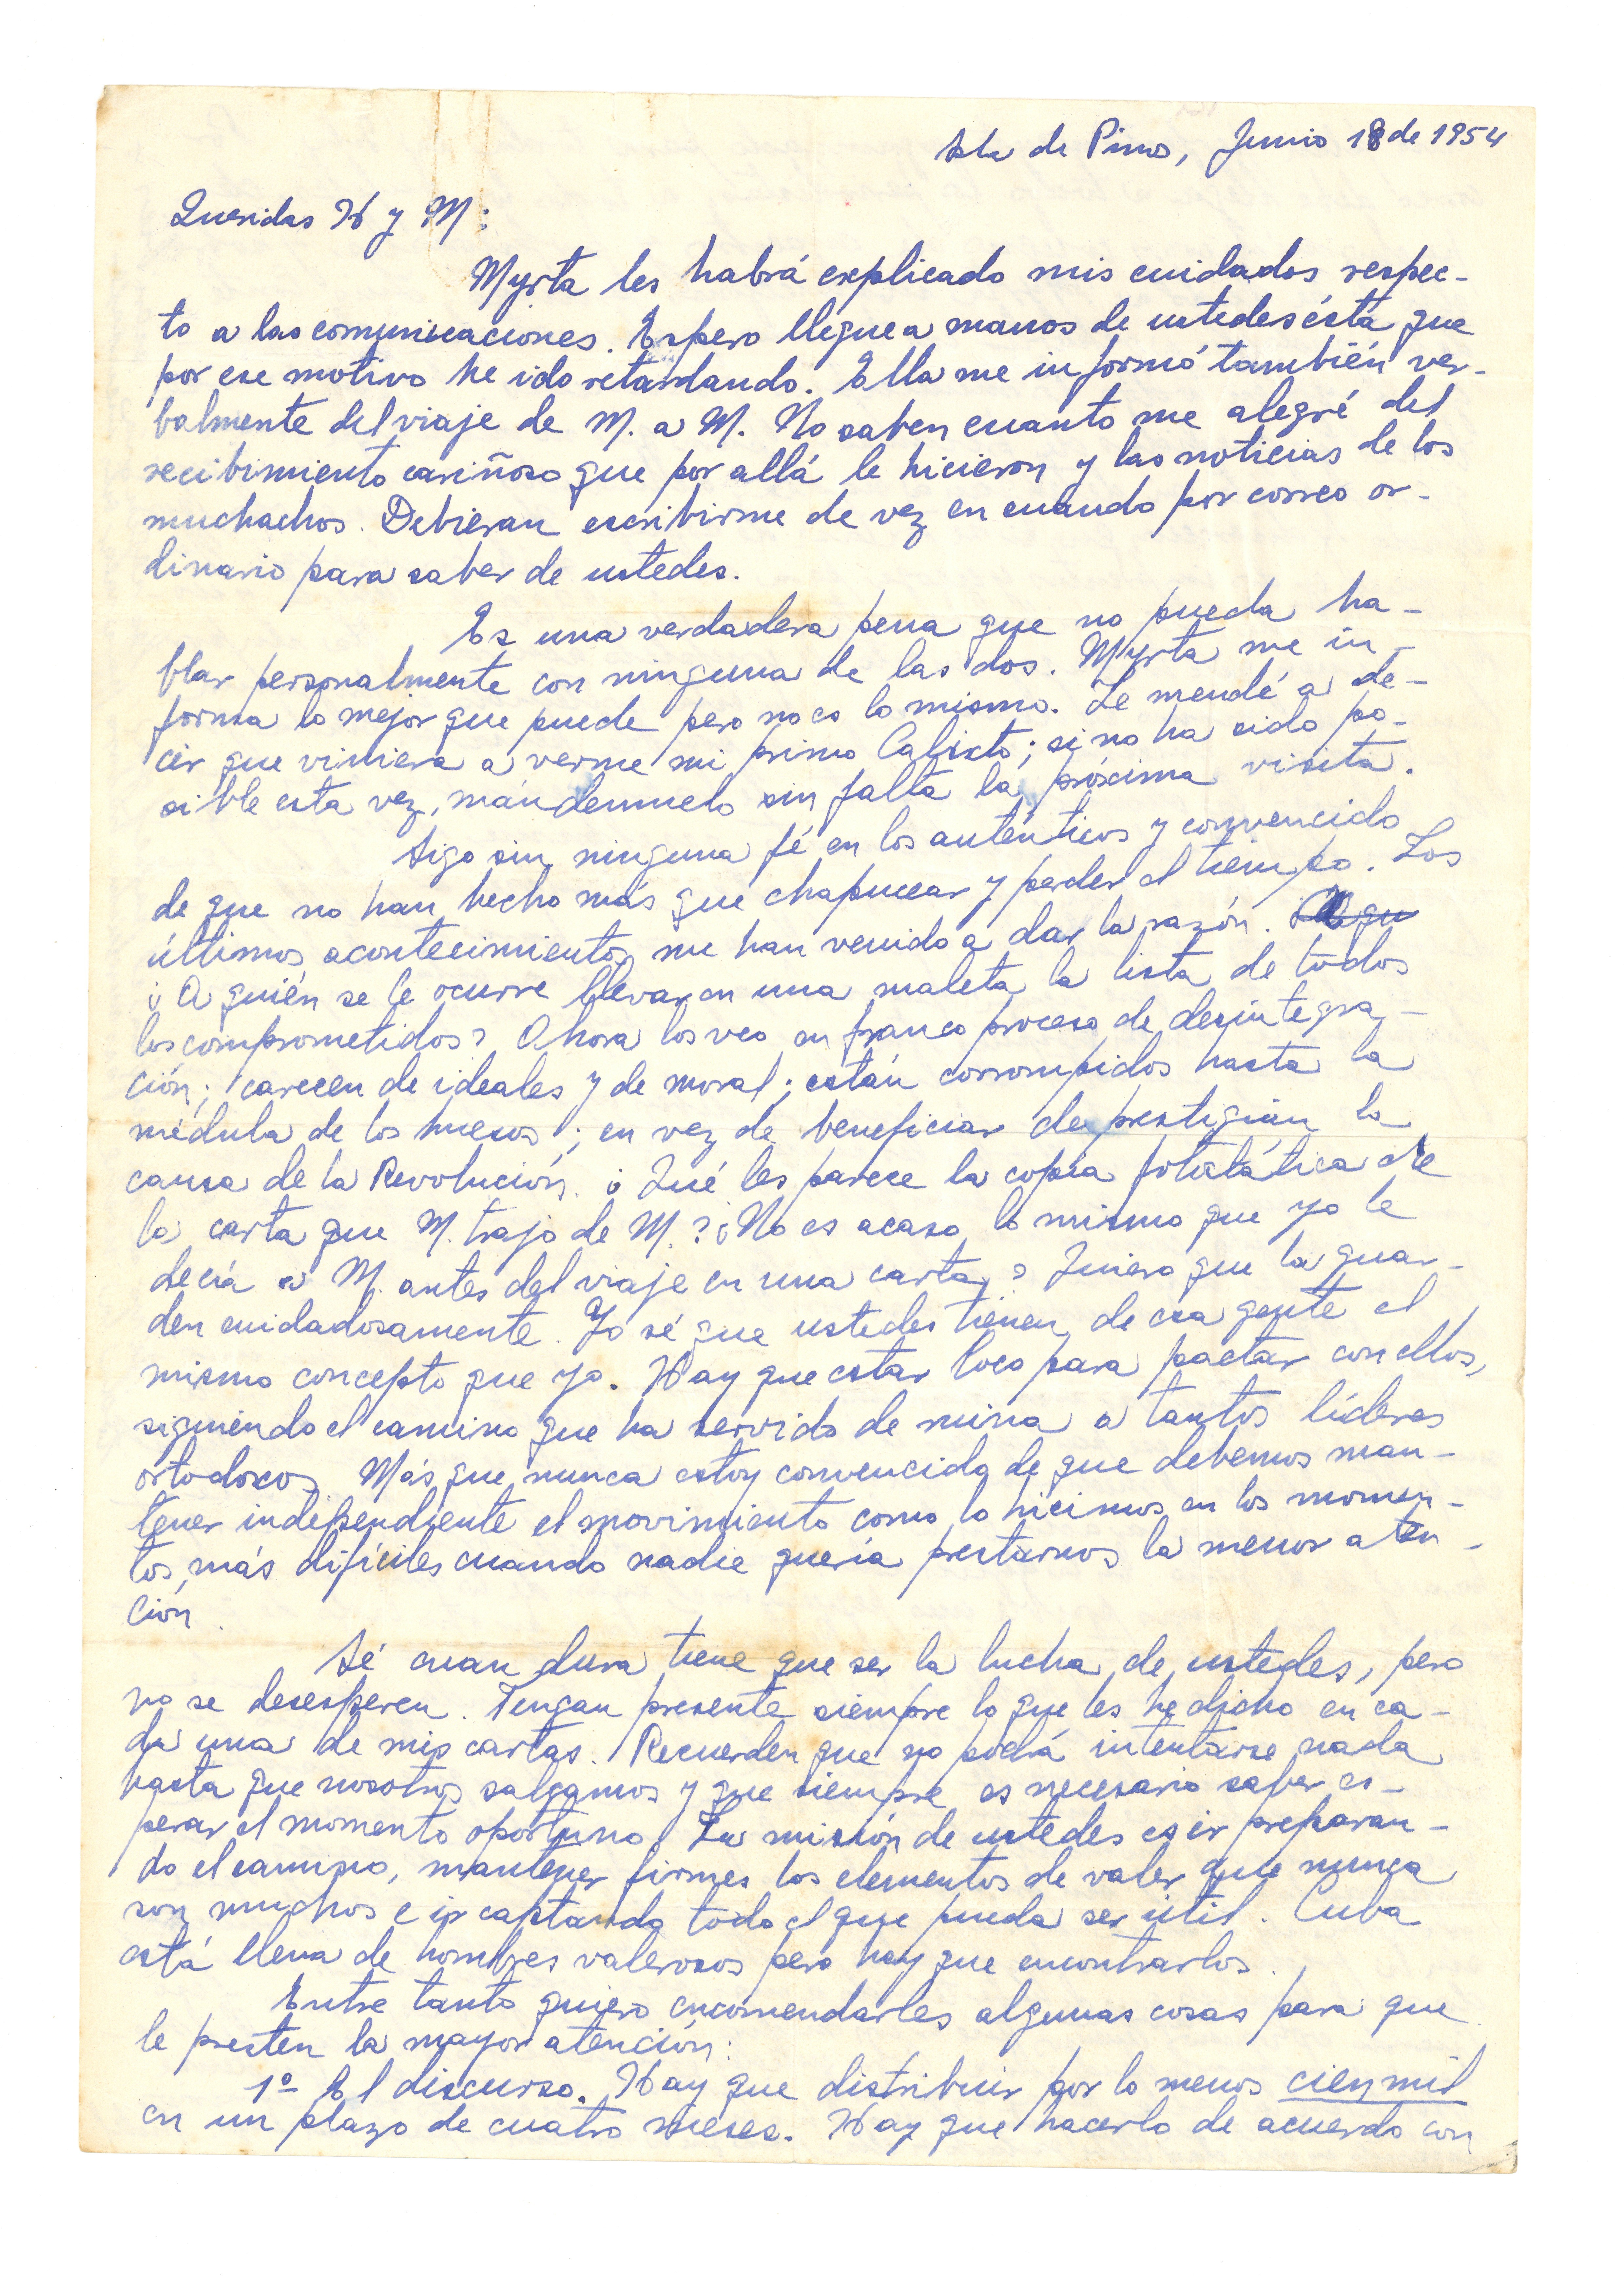 Isla de Pinos, Junio 18 de 1954
Queridas H y M:
Myrta les habrá explicado mis cuidados respec-
to a las comunicaciones. Espero llegue a manos de ustedes ésta que
por ese motivo he ido retardando. Ella me informó también ver-
balmente del viaje de M. a M. No saben cuanto me alegré del
recibimiento cariñoso que por allá le hicieron y las noticias de los
muchachos. Debieran escribirme de vez en cuando por correo or-
dinario para saber de ustedes.
Es una verdadera pena que no pueda ha-
blar personalmente con ninguna de las dos. Myrta me in-
forma lo mejor que puede pero no es lo mismo. Le mandé a de-
cir que viniera a verme mi primo Calixto; si no ha sido po-
sible esta vez, mándenmelo sin falta la próxima visita.
Sigo sin ninguna fé en los auténticos y convencido
de que no han hecho más que chapucear y perder el tiempo. Los
últimos acontecimientos me han venido a dar la razón.
¿A quién se le ocurre llevar en una maleta la lista de todos
los comprometidos? Ahora los veo en franco proceso de desintegra-
ción; carecen de ideales y de moral; están corrompidos hasta la
médula de los huesos; en vez de beneficiar desprestigian la
causa de la Revolución. ¿Qué les parece la copia fotostática de
la carta que M. trajo de M.? ¿No es acaso lo mismo que yo le
decía a M. antes del viaje en una carta? Quiero que la guar-
den cuidadosamente. Yo sé que ustedes tienen de esa gente el
mismo concepto que yo. Hay que estar loco para pactar con ellos,
siguiendo el camino que ha servido de ruina a tantos líderes
ortodoxos. Más que nunca estoy convencido de que debemos man-
tener independiente el movimiento como lo hicimos en los momen-
tos más difíciles cuando nadie quería prestarnos la menor aten-
ción.
Sé cuan dura tiene que ser la lucha de ustedes, pero
no se desesperen. Tengan presente siempre lo que les he dicho en ca-
da una de mis cartas. Recuerden que no podrá intentarse nada
hasta que nosotros salgamos y que siempre es necesario saber es-
perar el momento oportuno. La misión de ustedes es ir preparan-
do el camino, mantener firmes los elementos de valer que nunca
son muchos e ir captando todo el que pueda ser útil. Cuba
está llena de hombres valerosos pero hay que encontrarlos.
Entre tanto quiero encomendarles algunas cosas para que
le presten la mayor atención:
1º El discurso. Hay que distribuir por lo menos cien mil
en un plazo de cuatro meses. Hay que hacerlo de acuerdo con